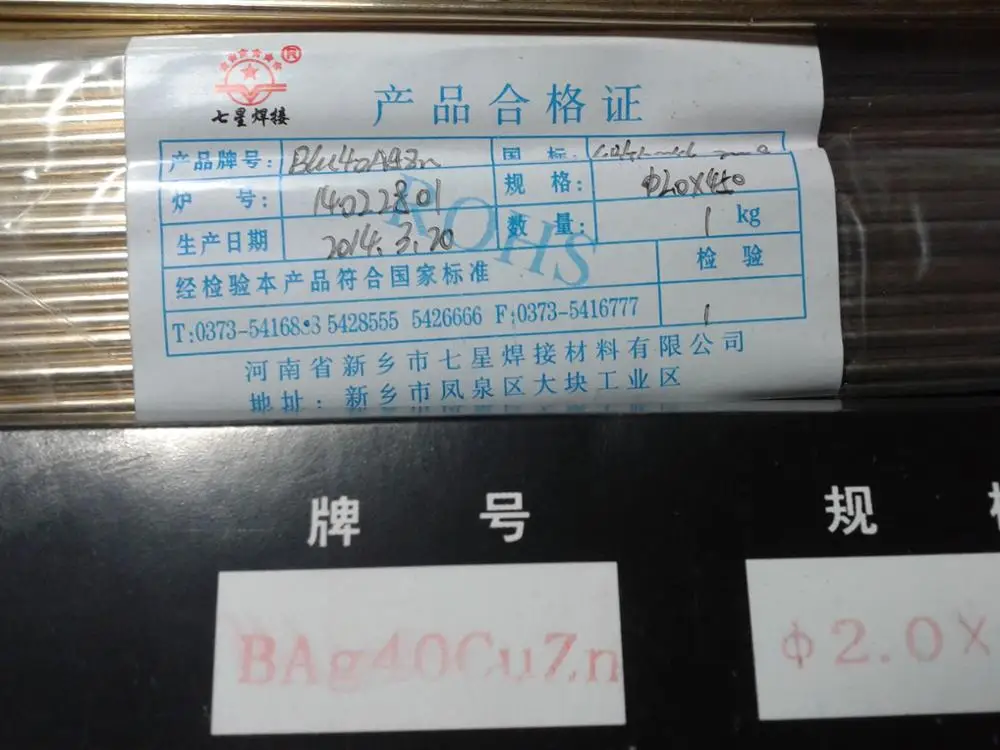 R
七星焊接
产品合格证
产品牌号: BCu40AgZn 国 标:
炉 号: 14022801 规 格: Φ2.0X450
生产日期 2014.3.20 数 量: 1 kg
ROHS
经检验本产品符合国家标准 检 验
T:0373-54168 3 5428555 5426666 F:0373-5416777 1
河南省新乡市七星焊接材料有限公司
地址: 新乡市凤泉区大块工业区
牌 号 规
BAg40CuZn ф2.0×